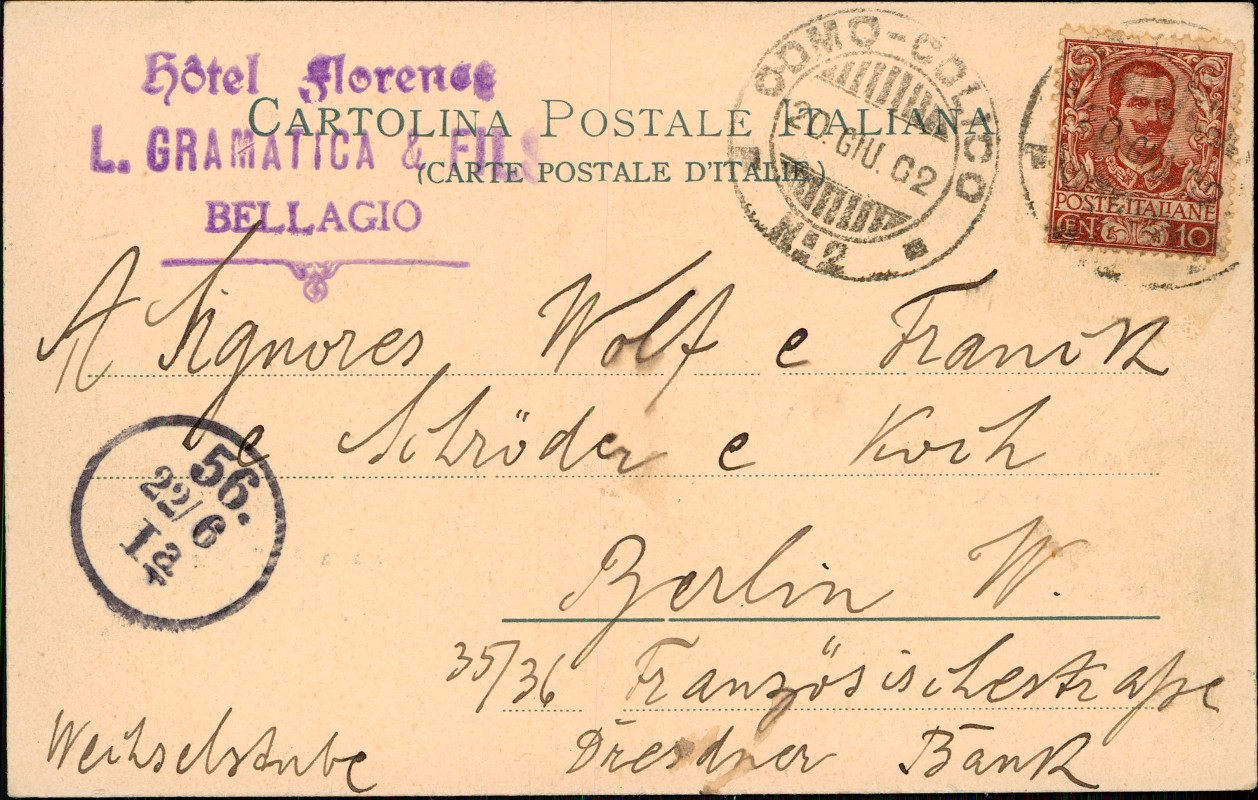 Hôtel Florence
L. GRAMATICA & FILS
BELLAGIO
CARTOLINA POSTALE ITALIANA
(CARTE POSTALE D'ITALIE)
COMO-COLICO
20. GIU. 02
Nº 2
POSTE ITALIANE
CENT. 10
A Signores Wolf e Franck
e Schröder e Koch
56.
22/6
12
Berlin W.
35/36 Französischestraße
Wechselstube Dresdner Bank